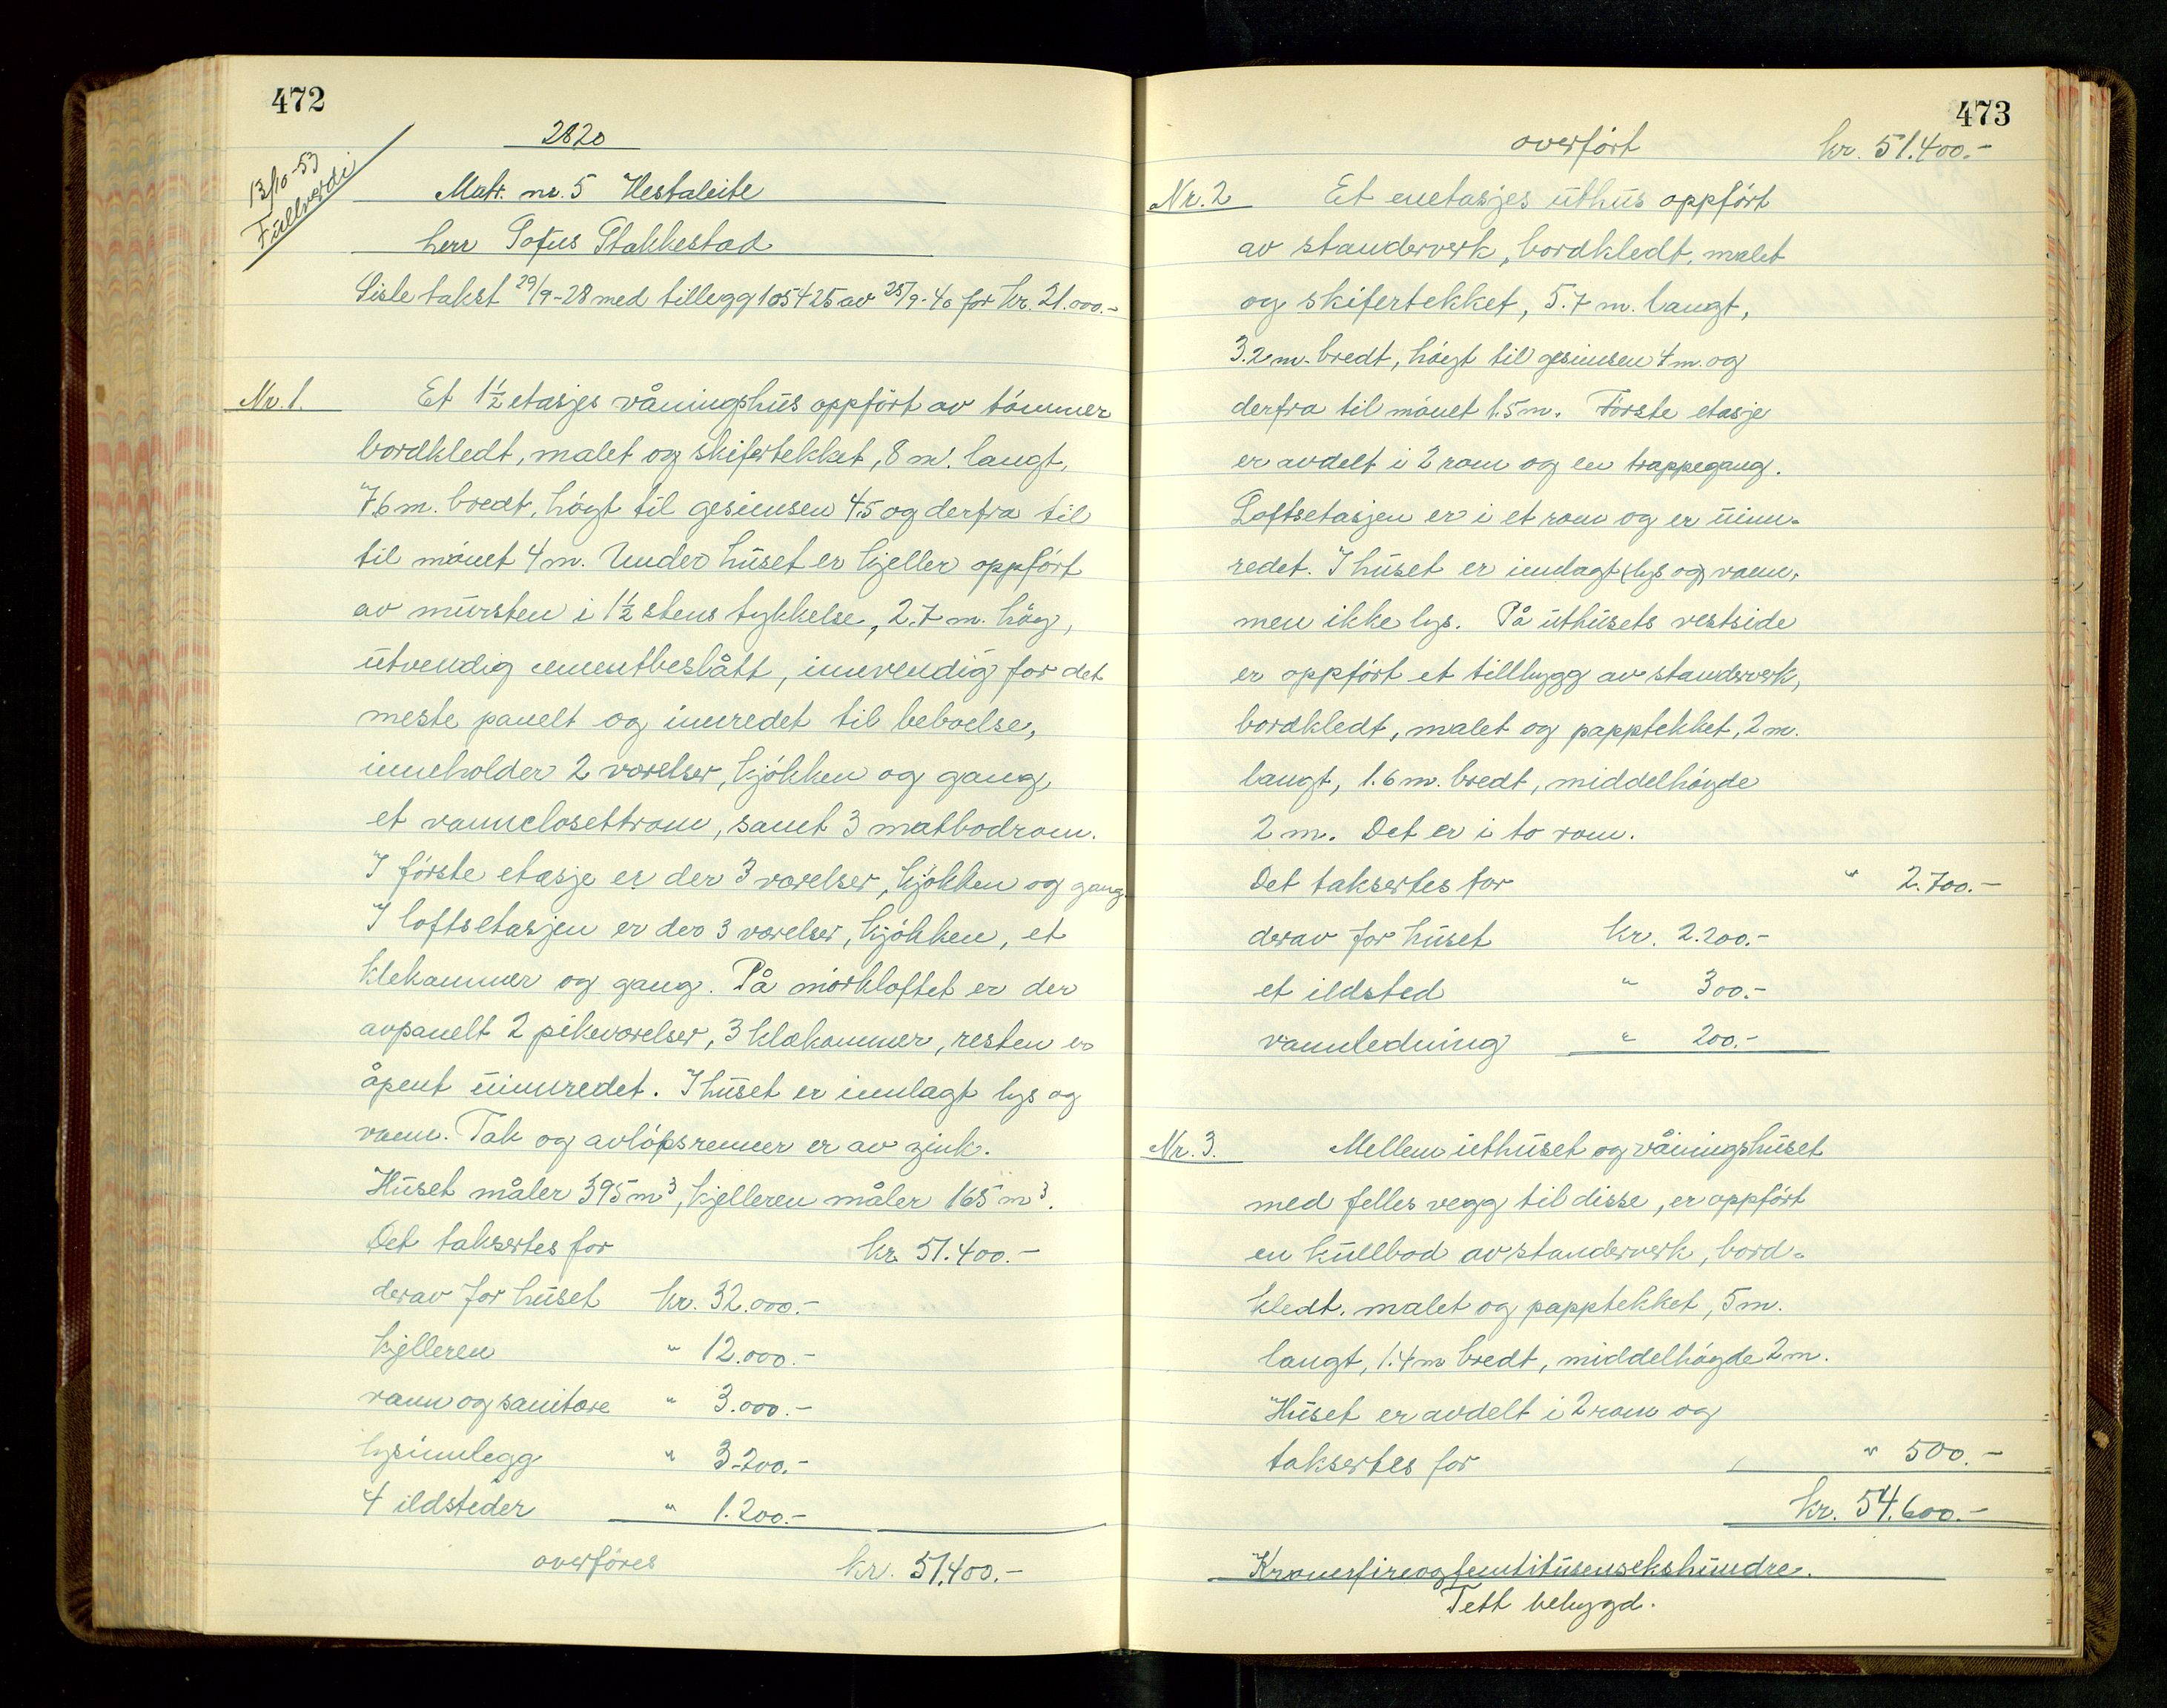 472
2820
13/10-53
Fullverdi
Matr. nr. 5 Hestaleite
herr Sofus Stakkestad
Siste takst 29/9-28 med tillegg 105425 av 25/9-40 for kr. 21.000.-
Nr. 1. Et 1½ etasjes våningshus oppført av tømmer
bordkledt, malet og skifertekket, 8 m. langt,
7.6 m. bredt, høgt til gesimsen 4.5 og derfra til
til mønet 4 m. Under huset er kjeller oppført
av mursten i 1½ stens tykkelse, 2.7 m. høg,
utvendig sementbeslått, innvendig for det
meste panelt og innredet til beboelse,
inneholder 2 værelser, kjøkken og gang,
et vannclosettrom, samt 3 matbodrom.
I første etasje er der 3 værelser, kjøkken og gang.
I loftsetasjen er der 3 værelser, kjøkken, et
klekammer og gang. På mørkloftet er der
avpanelt 2 pikeværelser, 3 klekammer, resten er
åpent uinnredet. I huset er innlagt lys og
vann. Tak og avløpsrenner er av zink.
Huset måler 395 m³, kjelleren måler 165 m³.
Det taksertes for kr. 51.400.-
derav for huset kr. 32.000.-
kjelleren " 12.000.-
vann og sanitære " 3.000.-
lysinnlegg " 3.200.-
4 ildsteder " 1.200.-
overføres kr. 51.400.-
473
overført kr. 51.400.-
Nr. 2 Et enetasjes uthus oppført
av standerverk, bordkledt, malet
og skifertekket, 5.7 m. langt,
3.2 m. bredt, høgt til gesimsen 4 m. og
derfra til mønet 1.5 m. Første etasje
er avdelt i 2 rom og en trappegang.
Loftsetasjen er i et rom og er uinn-
redet. I huset er innlagt (lys og) vann,
men ikke lys. På uthusets vestside
er oppført et tillbygg av standerverk,
bordkledt, malet og papptekket, 2 m.
langt, 1.6 m. bredt, middelhøgde
2 m. Det er i to rom.
Det taksertes for " 2.700.-
derav for huset kr. 2.200.-
et ildsted " 300.-
vannledning " 200.-
Nr. 3. Mellem uthuset og våningshuset
med felles vegg til disse, er oppført
en kullbod av standerverk, bord-
kledt, malet og papptekket, 5 m.
langt, 1.4 m bredt, middelhøgde 2 m.
Huset er avdelt i 2 rom og
taksertes for " 500.-
kr. 54.600.-
Kronerfireogfemtitusensekshundre.
Tett bebygd.